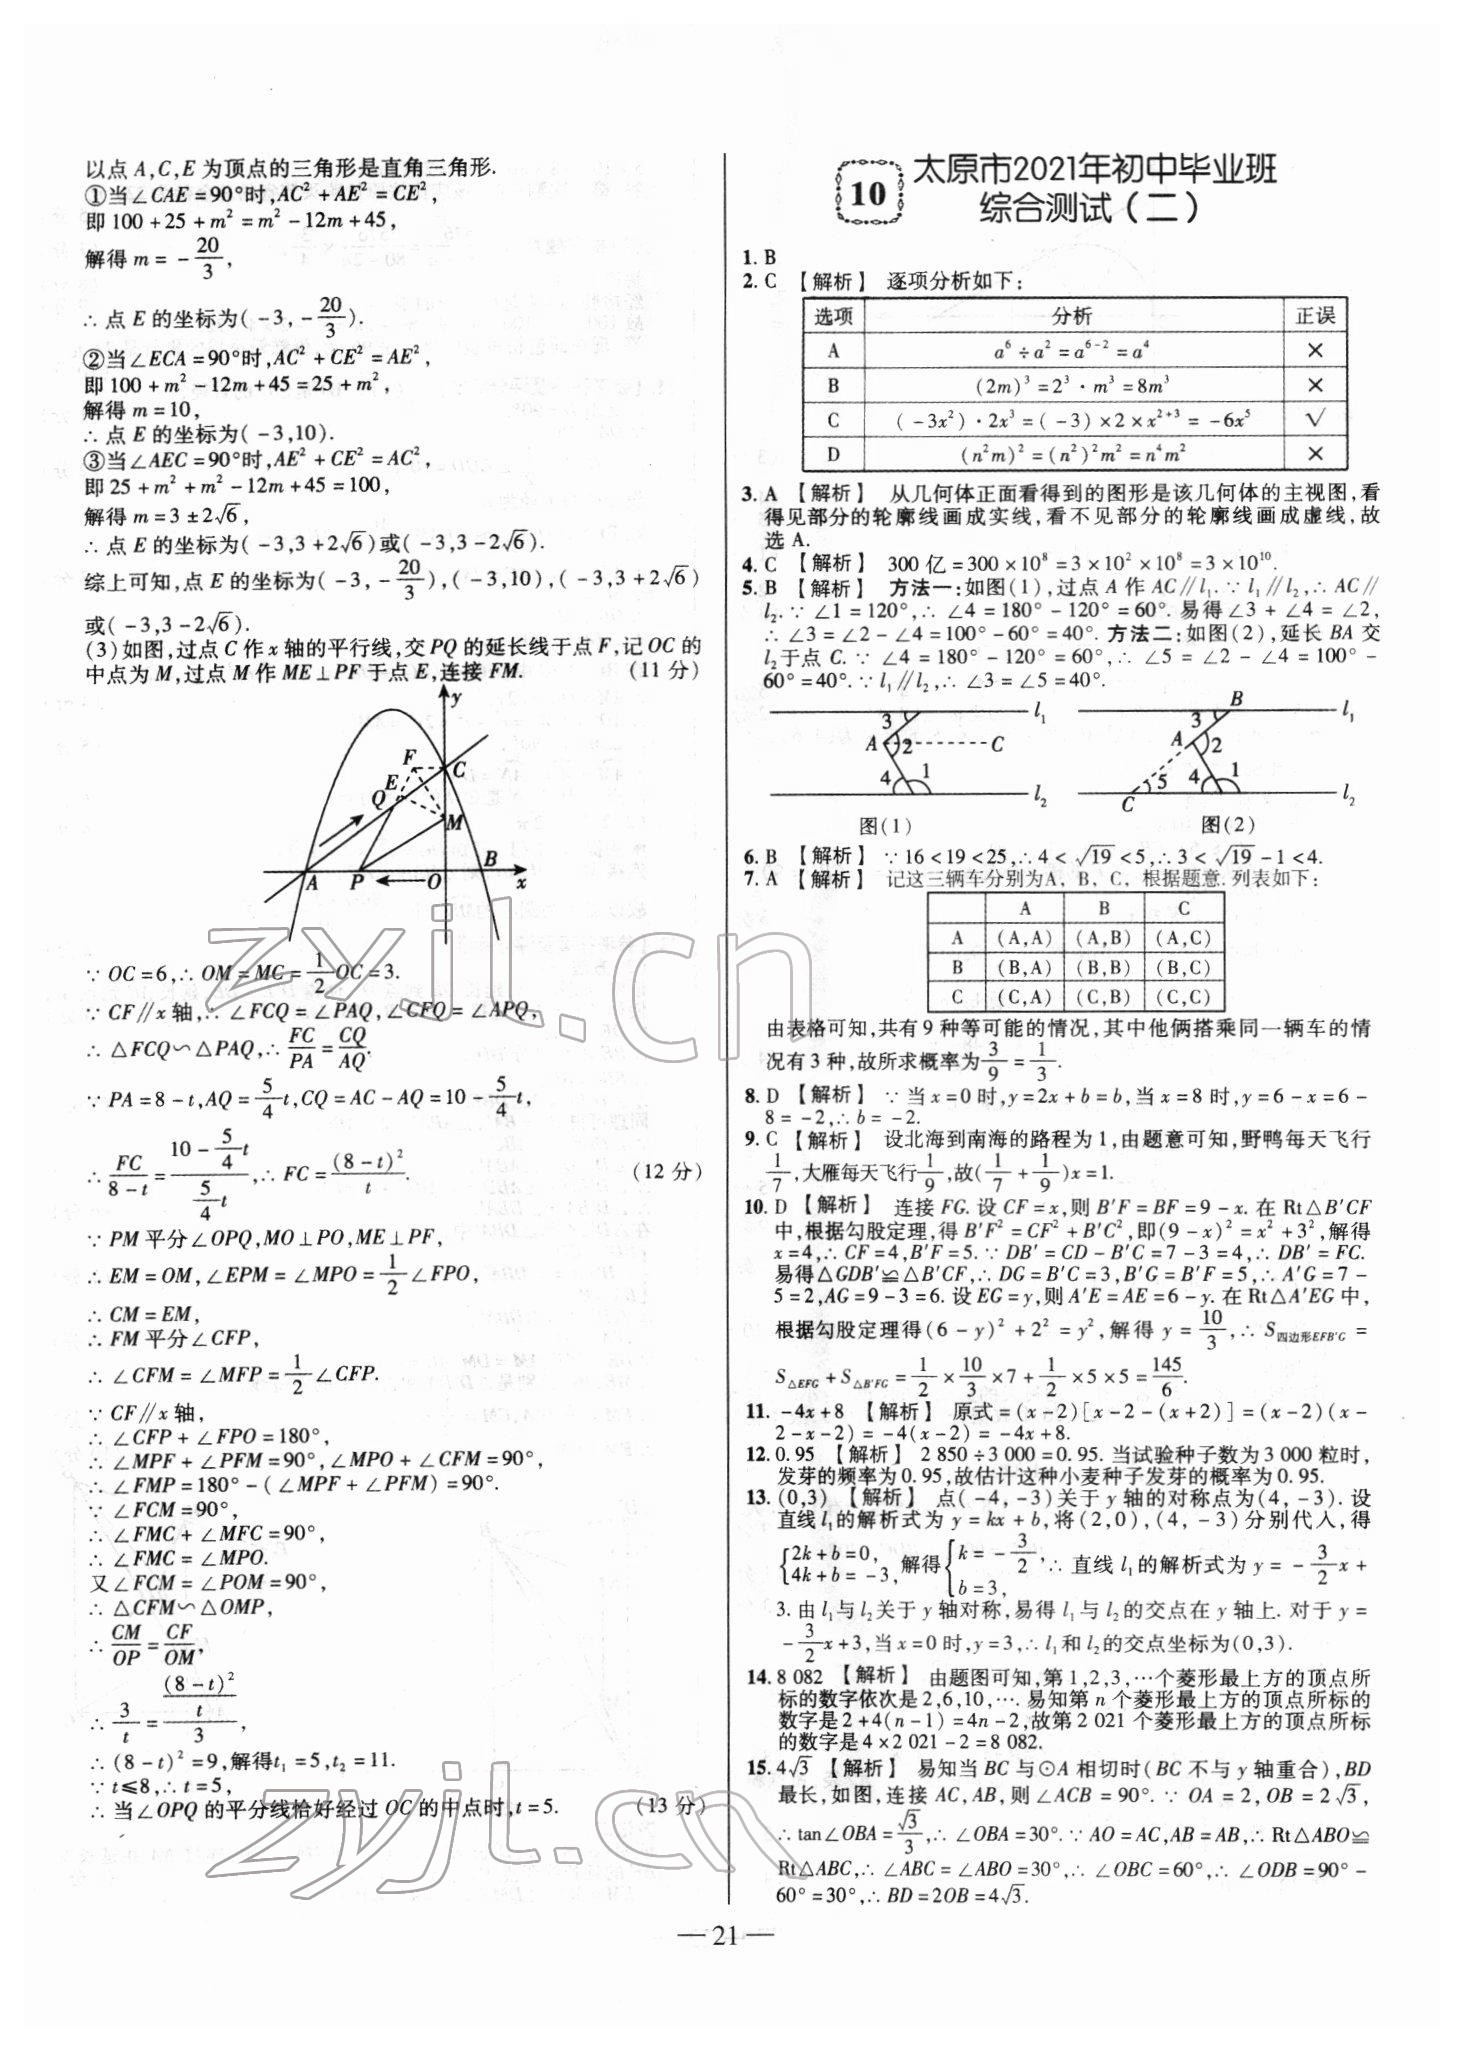 以点 A,C,E 为顶点的三角形是直角三角形.
①当∠CAE=90°时,AC²+AE²=CE²,
即 100+25+m²=m²-12m+45,
解得 m=-20/3,
∴点 E 的坐标为(-3,-20/3).
②当∠ECA=90°时,AC²+CE²=AE²,
即 100+m²-12m+45=25+m²,
解得 m=10,
∴点 E 的坐标为(-3,10).
③当∠AEC=90°时,AE²+CE²=AC²,
即 25+m²+m²-12m+45=100,
解得 m=3±2√6,
∴点 E 的坐标为(-3,3+2√6)或(-3,3-2√6).
综上可知,点 E 的坐标为(-3,-20/3),(-3,10),(-3,3+2√6)
或(-3,3-2√6).
(3)如图,过点 C 作 x 轴的平行线,交 PQ 的延长线于点 F,记 OC 的
中点为 M,过点 M 作 ME⊥PF 于点 E,连接 FM. (11 分)
y
F
C
E
Q
M
A P O B x
∵OC=6,∴OM=MC=1/2OC=3.
∵CF∥x 轴,∴∠FCQ=∠PAQ,∠CFQ=∠APQ,
∴△FCQ∽△PAQ,∴FC/PA=CQ/AQ.
∵PA=8-t,AQ=5/4t,CQ=AC-AQ=10-5/4t,
∴FC/(8-t)=(10-5/4t)/(5/4t),∴FC=(8-t)²/t. (12 分)
∵PM 平分∠OPQ,MO⊥PO,ME⊥PF,
∴EM=OM,∠EPM=∠MPO=1/2∠FPO,
∴CM=EM,
∴FM 平分∠CFP,
∴∠CFM=∠MFP=1/2∠CFP.
∵CF∥x 轴,
∴∠CFP+∠FPO=180°,
∴∠MPF+∠PFM=90°,∠MPO+∠CFM=90°,
∴∠FMP=180°-(∠MPF+∠PFM)=90°.
∵∠FCM=90°,
∴∠FMC+∠MFC=90°,
∴∠FMC=∠MPO.
又∠FCM=∠POM=90°,
∴△CFM∽△OMP,
∴CM/OP=CF/OM,
∴3/t=((8-t)²/t)/3,
∴(8-t)²=9,解得t₁=5,t₂=11.
∵t≤8,∴t=5,
∴当∠OPQ 的平分线恰好经过 OC 的中点时,t=5. (13 分)
10 太原市2021年初中毕业班
综合测试(二)
1. B
2. C 【解析】 逐项分析如下:
选项 分析 正误
A a⁶÷a²=a⁶⁻²=a⁴ ×
B (2m)³=2³·m³=8m³ ×
C (-3x²)·2x³=(-3)×2×x²⁺³=-6x⁵ √
D (n²m)²=(n²)²m²=n⁴m² ×
3. A 【解析】 从几何体正面看得到的图形是该几何体的主视图,看
得见部分的轮廓线画成实线,看不见部分的轮廓线画成虚线,故
选 A.
4. C 【解析】 300 亿=300×10⁸=3×10²×10⁸=3×10¹⁰.
5. B 【解析】 方法一:如图(1),过点 A 作 AC∥l₁.∵l₁∥l₂,∴AC∥
l₂.∵∠1=120°,∴∠4=180°-120°=60°.易得∠3+∠4=∠2,
∴∠3=∠2-∠4=100°-60°=40°.方法二:如图(2),延长 BA 交
l₂于点 C.∵∠4=180°-120°=60°,∴∠5=∠2-∠4=100°-
60°=40°.∵l₁∥l₂,∴∠3=∠5=40°.
3 l₁
A 2 C
4 1 l₂
图(1)
B
3 l₁
A 2
5 4 1 l₂
C
图(2)
6. B 【解析】 ∵16<19<25,∴4<√19<5,∴3<√19-1<4.
7. A 【解析】 记这三辆车分别为A, B, C, 根据题意.列表如下:
A B C
A (A,A) (A,B) (A,C)
B (B,A) (B,B) (B,C)
C (C,A) (C,B) (C,C)
由表格可知,共有 9 种等可能的情况,其中他俩搭乘同一辆车的情
况有 3 种,故所求概率为3/9=1/3.
8. D 【解析】 ∵当 x=0 时,y=2x+b=b,当 x=8 时,y=6-x=6-
8=-2,∴b=-2.
9. C 【解析】 设北海到南海的路程为 1,由题意可知,野鸭每天飞行
1/7,大雁每天飞行1/9,故(1/7+1/9)x=1.
10. D 【解析】 连接 FG.设 CF=x,则 B′F=BF=9-x.在 Rt△B′CF
中,根据勾股定理,得 B′F²=CF²+B′C²,即(9-x)²=x²+3²,解得
x=4,∴CF=4,B′F=5.∵DB′=CD-B′C=7-3=4,∴DB′=FC.
易得△GDB′≌△B′CF,∴DG=B′C=3,B′G=B′F=5,∴A′G=7-
5=2,AG=9-3=6.设 EG=y,则 A′E=AE=6-y.在 Rt△A′EG 中,
根据勾股定理得(6-y)²+2²=y²,解得 y=10/3,∴S四边形EFB′G=
S△EFG+S△B′FG=1/2×10/3×7+1/2×5×5=145/6.
11. -4x+8 【解析】 原式=(x-2)[x-2-(x+2)]=(x-2)(x-
2-x-2)=-4(x-2)=-4x+8.
12. 0.95 【解析】 2 850÷3 000=0.95.当试验种子数为 3 000 粒时,
发芽的频率为 0.95,故估计这种小麦种子发芽的概率为 0.95.
13. (0,3) 【解析】 点(-4,-3)关于 y 轴的对称点为(4,-3).设
直线 l₁的解析式为 y=kx+b,将(2,0),(4,-3)分别代入,得
{2k+b=0, 4k+b=-3, 解得{k=-3/2, b=3, ∴直线 l₁的解析式为 y=-3/2x+
3.由 l₁与 l₂关于 y 轴对称,易得 l₁与 l₂的交点在 y 轴上.对于 y=
-3/2x+3,当 x=0 时,y=3,∴l₁和 l₂的交点坐标为(0,3).
14. 8 082 【解析】 由题图可知,第 1,2,3,…个菱形最上方的顶点所
标的数字依次是 2,6,10,….易知第 n 个菱形最上方的顶点所标的
数字是 2+4(n-1)=4n-2,故第 2 021 个菱形最上方的顶点所标
的数字是 4×2 021-2=8 082.
15. 4√3 【解析】 易知当 BC 与⊙A 相切时(BC 不与 y 轴重合),BD
最长,如图,连接 AC,AB,则∠ACB=90°.∵OA=2,OB=2√3,
∴tan∠OBA=√3/3,∴∠OBA=30°.∵AO=AC,AB=AB,∴Rt△ABO≌
Rt△ABC,∴∠ABC=∠ABO=30°,∴∠OBC=60°,∴∠ODB=90°-
60°=30°,∴BD=2OB=4√3.
— 21 —
zyjl.cn
zyjl.cn